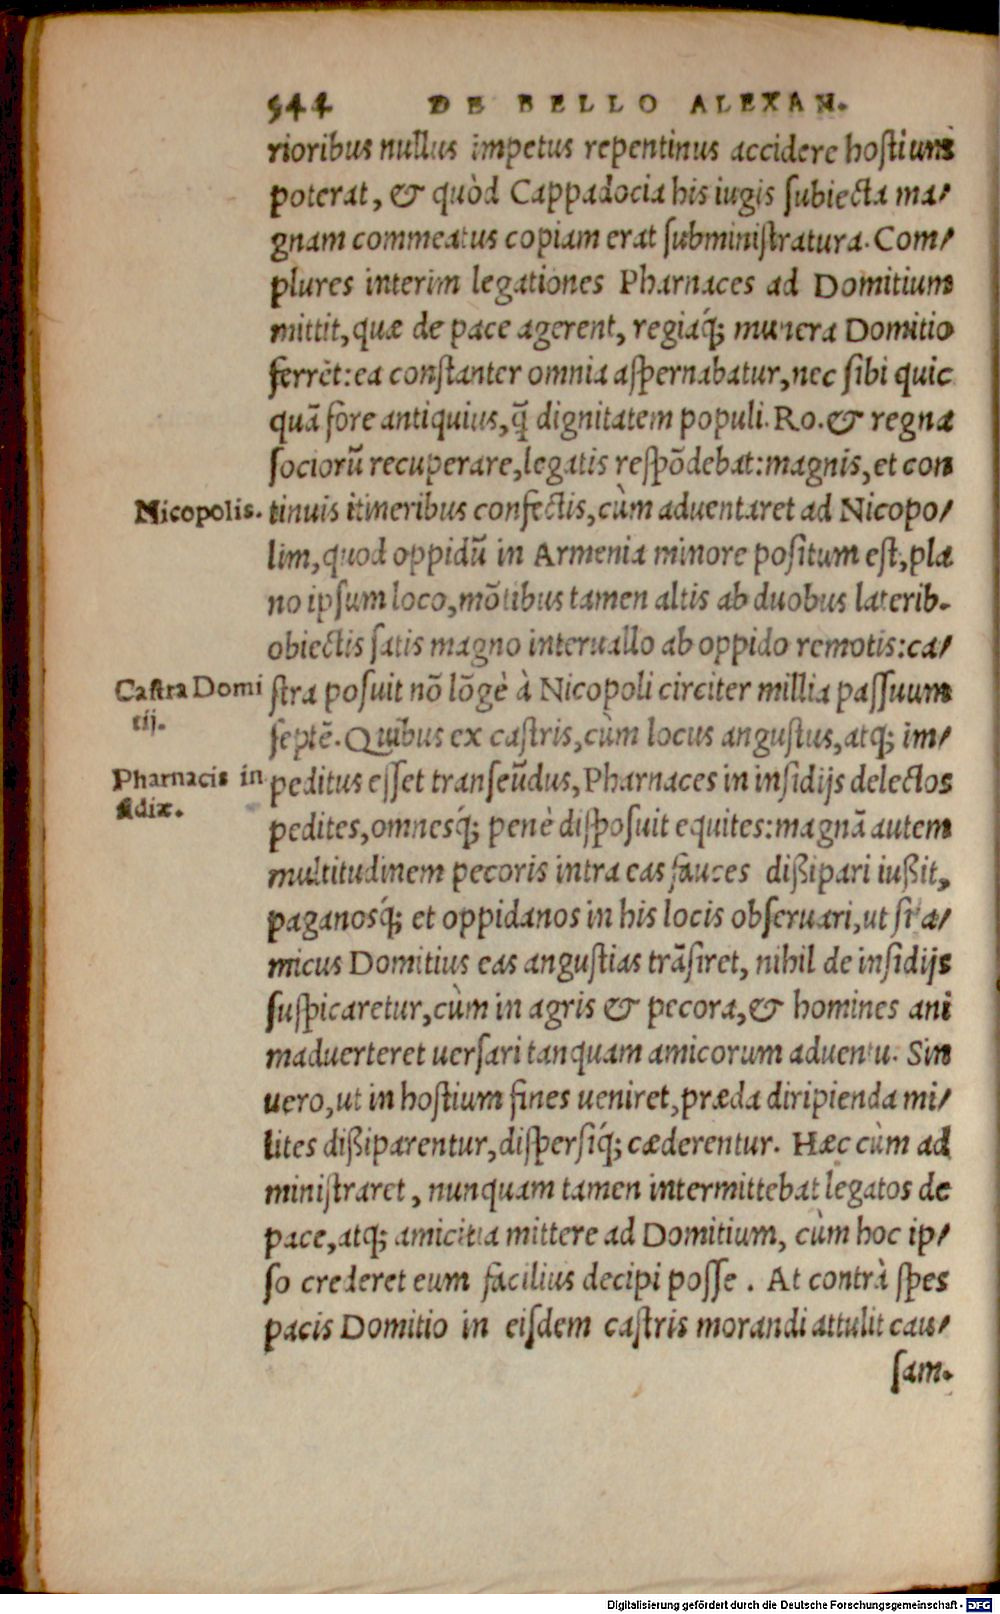 544 DE BELLO ALEXAN.
rioribus nullus impetus repentinus accidere hostium
poterat, & quòd Cappadocia his iugis subiecta ma/
gnam commeatus copiam erat subministratura. Com/
plures interim legationes Pharnaces ad Domitium
mittit, quæ de pace agerent, regiaq́; munera Domitio
ferrēt: ea constanter omnia aspernabatur, nec sibi quic
quā fore antiquius, q̄ dignitatem populi. Ro. & regna
sociorū recuperare, legatis respōdebat: magnis, et con
Nicopolis. tinuis itineribus confectis, cùm aduentaret ad Nicopo/
lim, quod oppidū in Armenia minore positum est, pla
no ipsum loco, mōtibus tamen altis ab duobus laterib.
obiectis satis magno interuallo ab oppido remotis: ca/
Castra Domi stra posuit nō lōgè à Nicopoli circiter millia passuum
tij. septē. Quibus ex castris, cùm locus angustus, atq; im/
Pharnacis in peditus esset transeūdus, Pharnaces in insidijs delectos
sidiæ. pedites, omnesq́; penè disposuit equites: magnā autem
multitudinem pecoris intra eas fauces dißipari iußit,
paganosq́; et oppidanos in his locis obseruari, ut si a/
micus Domitius eas angustias trāsiret, nihil de insidijs
suspicaretur, cùm in agris & pecora, & homines ani
maduerteret uersari tanquam amicorum aduentu. Sin
uero, ut in hostium fines ueniret, præda diripienda mi/
lites dißiparentur, dispersiq́; cæderentur. Hæc cùm ad
ministraret, nunquam tamen intermittebat legatos de
pace, atq; amicitia mittere ad Domitium, cùm hoc ip/
so crederet eum facilius decipi posse. At contrà spes
pacis Domitio in eisdem castris morandi attulit cau/
sam.
Digitalisierung gefördert durch die Deutsche Forschungsgemeinschaft - DFG